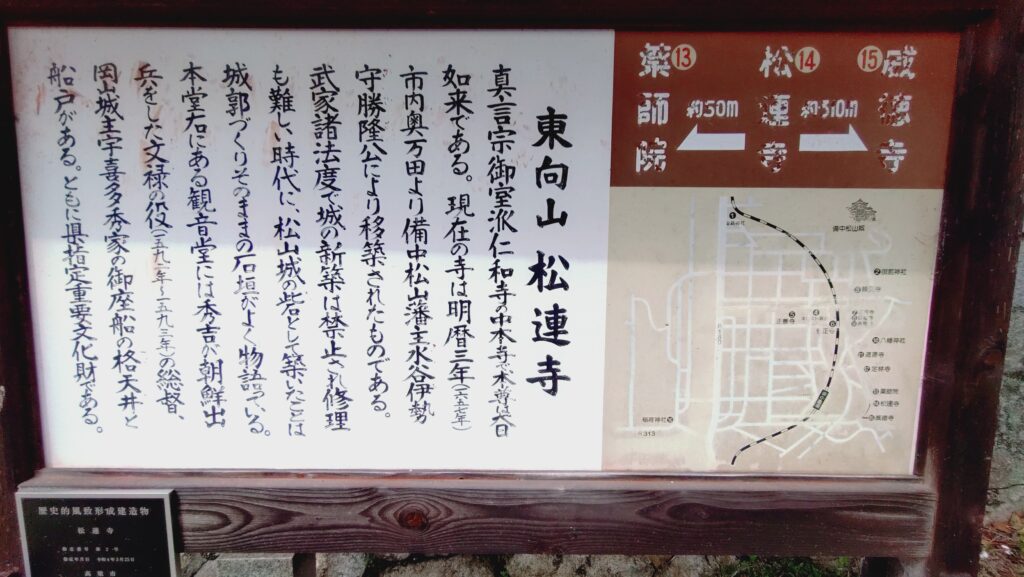 東向山 松連寺
真言宗御室派仁和寺の中本寺で本尊は大日
如来である。現在の寺は明暦三年(一六五七年)
市内奥万田より備中松山藩主水谷伊勢
守勝隆公により移築されたものである。
武家諸法度で城の新築は禁止され修理
も難しい時代に、松山城の砦として築いたことは
城郭づくりそのままの石垣がよく物語っている。
本堂右にある観音堂には秀吉が朝鮮出
兵をした文禄の役(一五九一年~一五九二年)の総督、
岡山城主宇喜多秀家の御座船の格天井と
船戸がある。ともに県指定重要文化財である。
⑮威徳寺
⑭松連寺
⑬薬師院
約50m
約310m
備中松山城
②御前神社
⑤正善寺
④
⑥
⑩八幡神社
道源寺
⑫定林寺
⑬薬師院
⑭松連寺
⑮威徳寺
稲荷神社⑯
R313
歴史的風致形成建造物
松連寺
指定番号 第2号
指定年月日 令和4年3月25日
高梁市